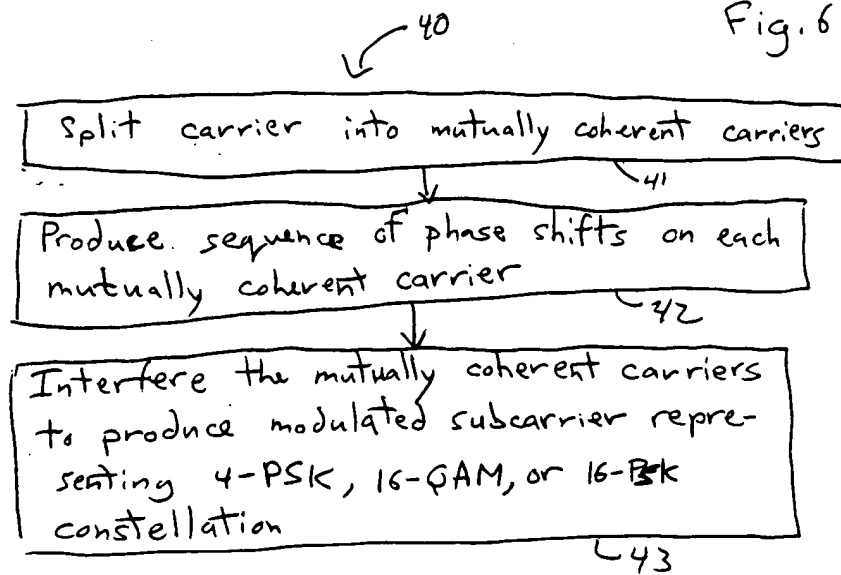 Fig. 6
40
Split carrier into mutually coherent carriers
41
Produce sequence of phase shifts on each
mutually coherent carrier
42
Interfere the mutually coherent carriers
to produce modulated subcarrier repre-
senting 4-PSK, 16-QAM, or 16-PSK
constellation
43